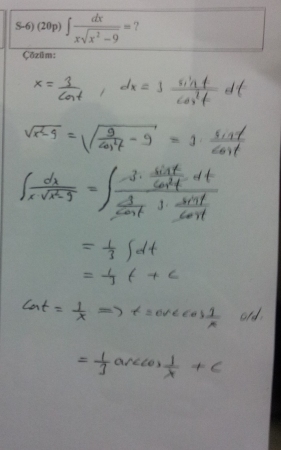 S-6) (20p) ∫ dx / (x√(x² − 9)) = ?
Çözüm:
x = 3/cost , dx = 3 sint/cos²t dt
√(x²-9) = √(9/cos²t − 9) = 3 · sint/cost
∫ dx / (x · √(x²-9)) = ∫ (3 · sint/cos²t dt) / (3/cost · 3 · sint/cost)
= 1/3 ∫ dt
= 1/3 t + c
cost = 1/x ⇒ t = arccos 1/x old.
= 1/3 arccos 1/x + c